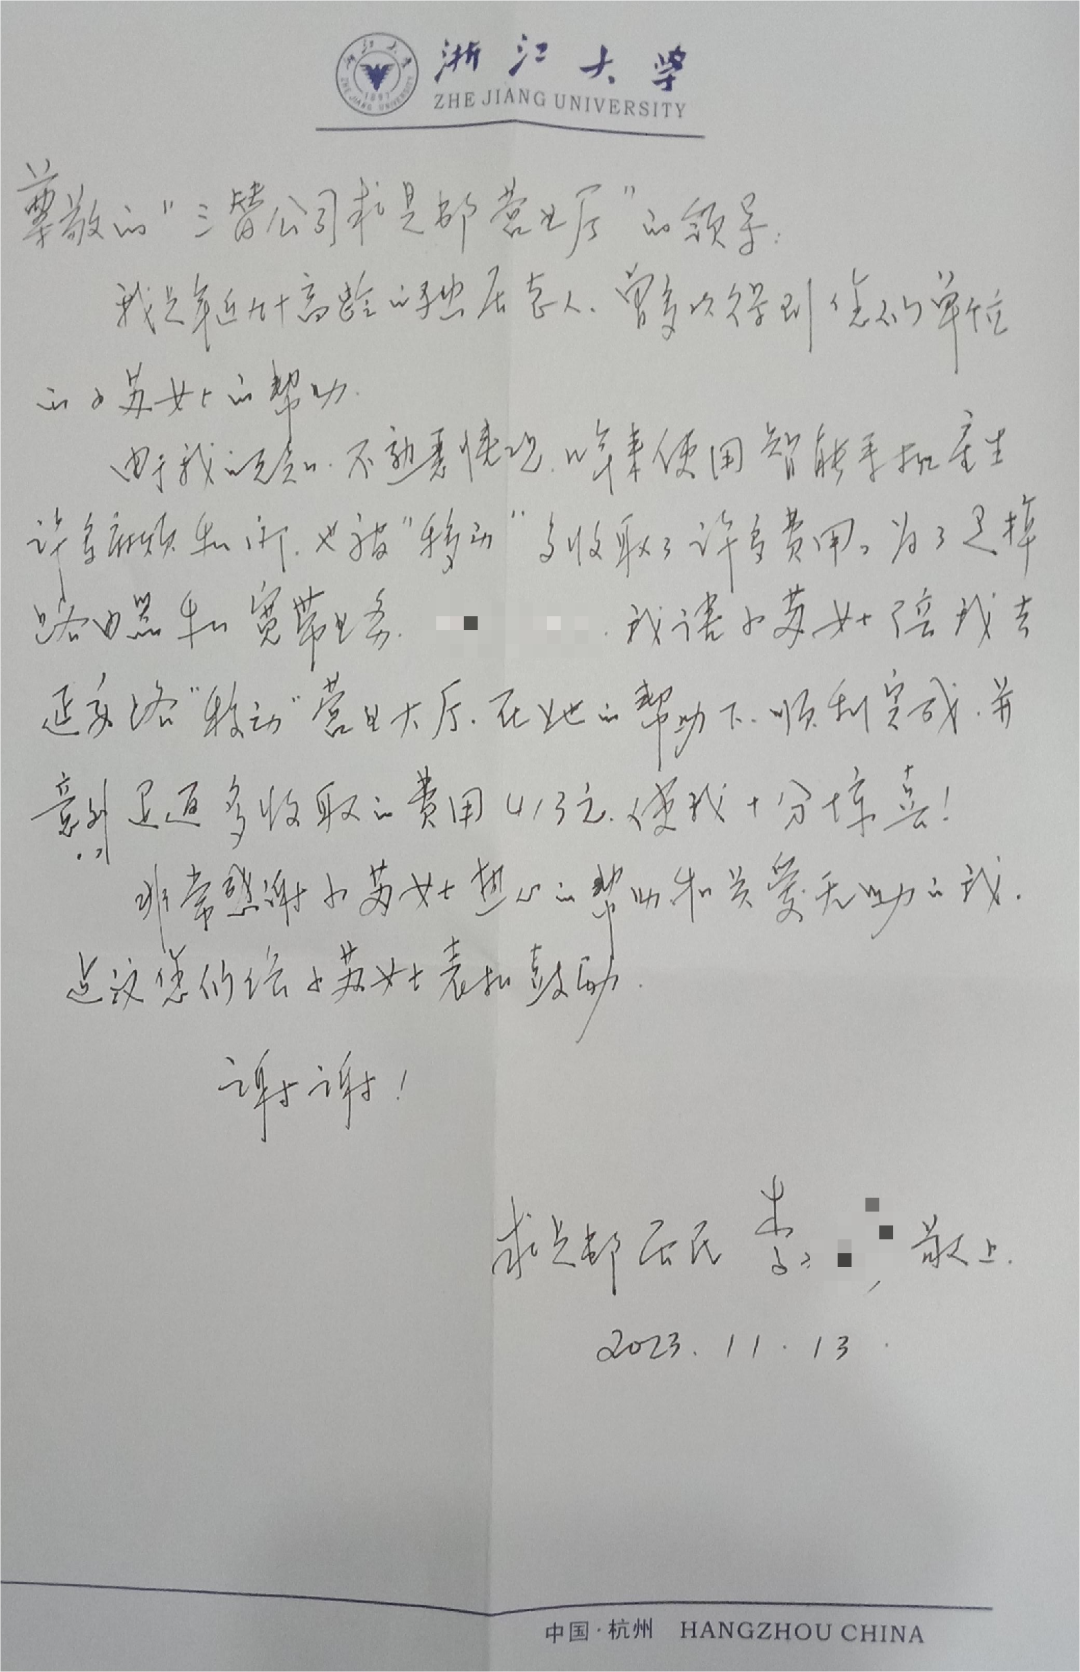 浙江大学
ZHE JIANG UNIVERSITY
尊敬的"三替公司求是邨营业厅"的领导:
我是年近九十高龄的独居老人、曾多次得到您们单位
的小苏女士的帮助.
由于我的无知、不熟悉情况、近年来使用智能手机产生
许多麻烦和, 也被"移动"多收取了许多费用。为了退掉
路由器和宽带业务. 我请小苏女士陪我去
延安路"移动"营业大厅.在她的帮助下.顺利完成.并
意外退还多收取的费用413元.使我十分惊喜!
非常感谢小苏女士热心的帮助和关爱无助的我.
建议您们给小苏女士表扬鼓励.
谢谢!
求是邨居民 李 敬上.
2023.11.13.
中国·杭州 HANGZHOU CHINA